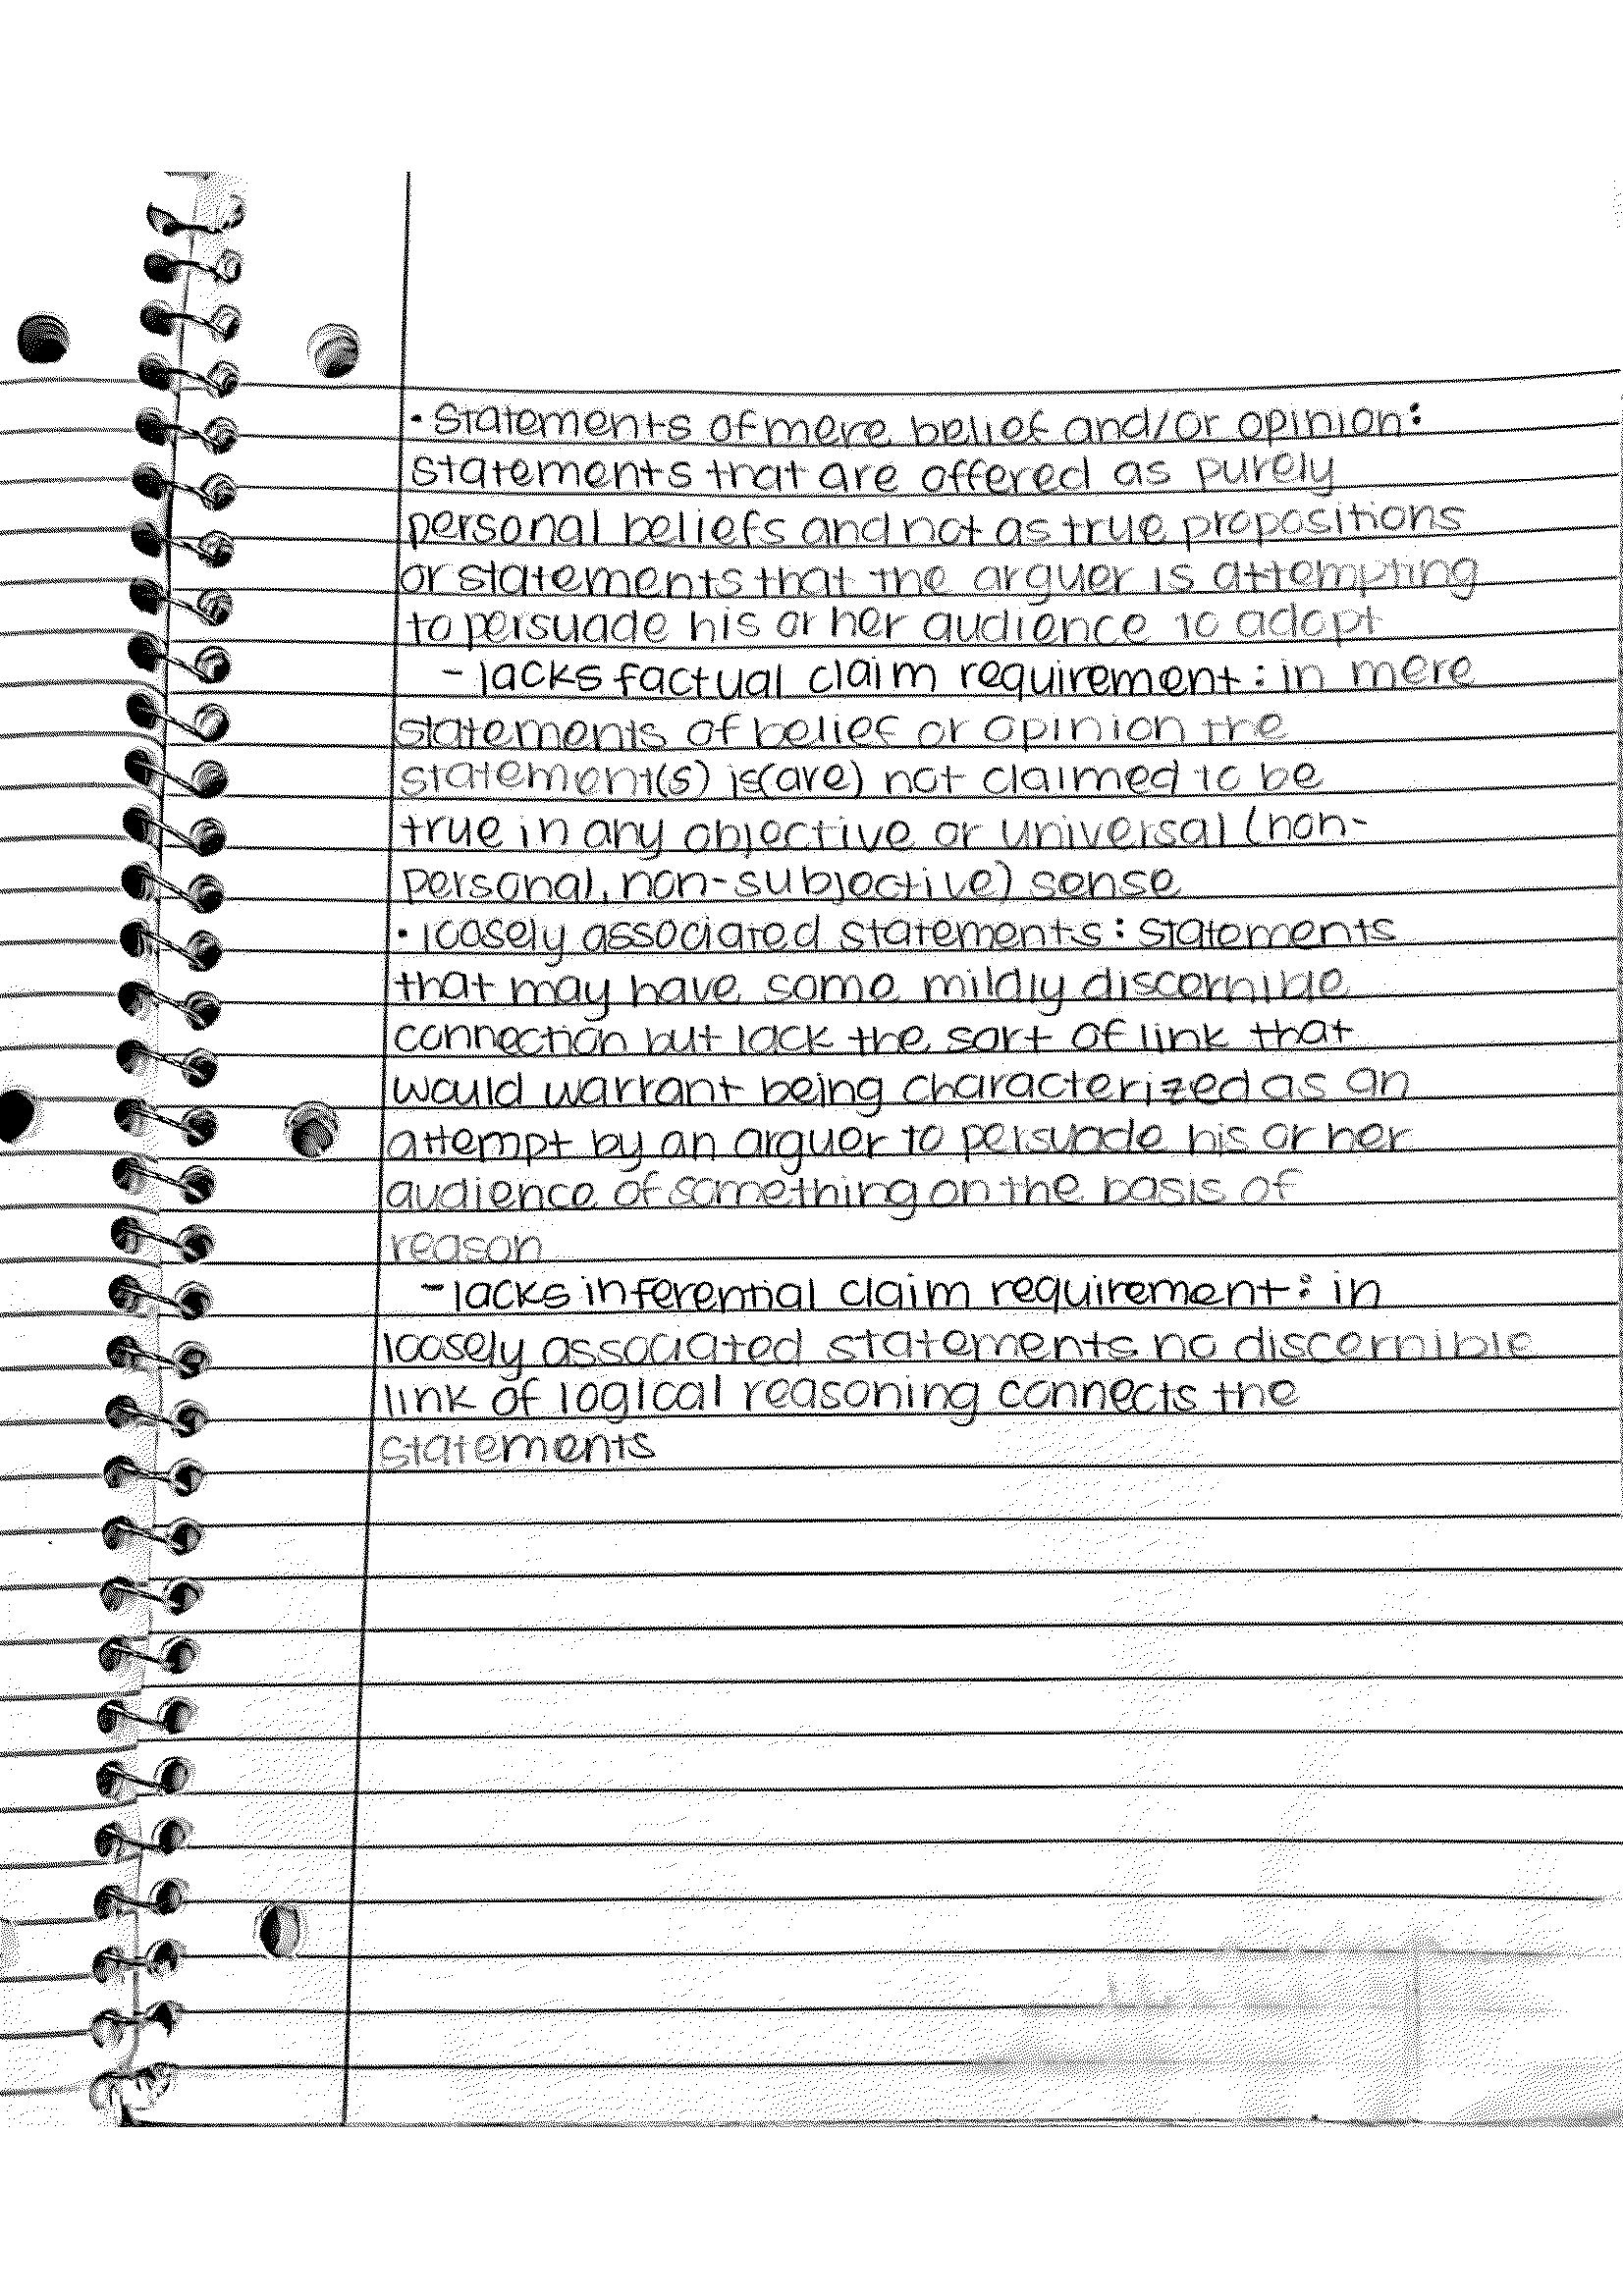 • statements of mere belief and/or opinion:
statements that are offered as purely
personal beliefs and not as true propositions
or statements that the arguer is attempting
to persuade his or her audience to adopt
- lacks factual claim requirement: in mere
statements of belief or opinion the
statement(s) is(are) not claimed to be
true in any objective or universal (non-
personal, non-subjective) sense
• loosely associated statements: statements
that may have some mildly discernible
connection but lack the sort of link that
would warrant being characterized as an
attempt by an arguer to persuade his or her
audience of something on the basis of
reason
- lacks inferential claim requirement: in
loosely associated statements no discernible
link of logical reasoning connects the
statements